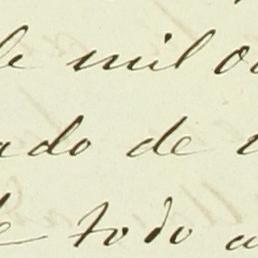 de mil o
ado de
de todo a